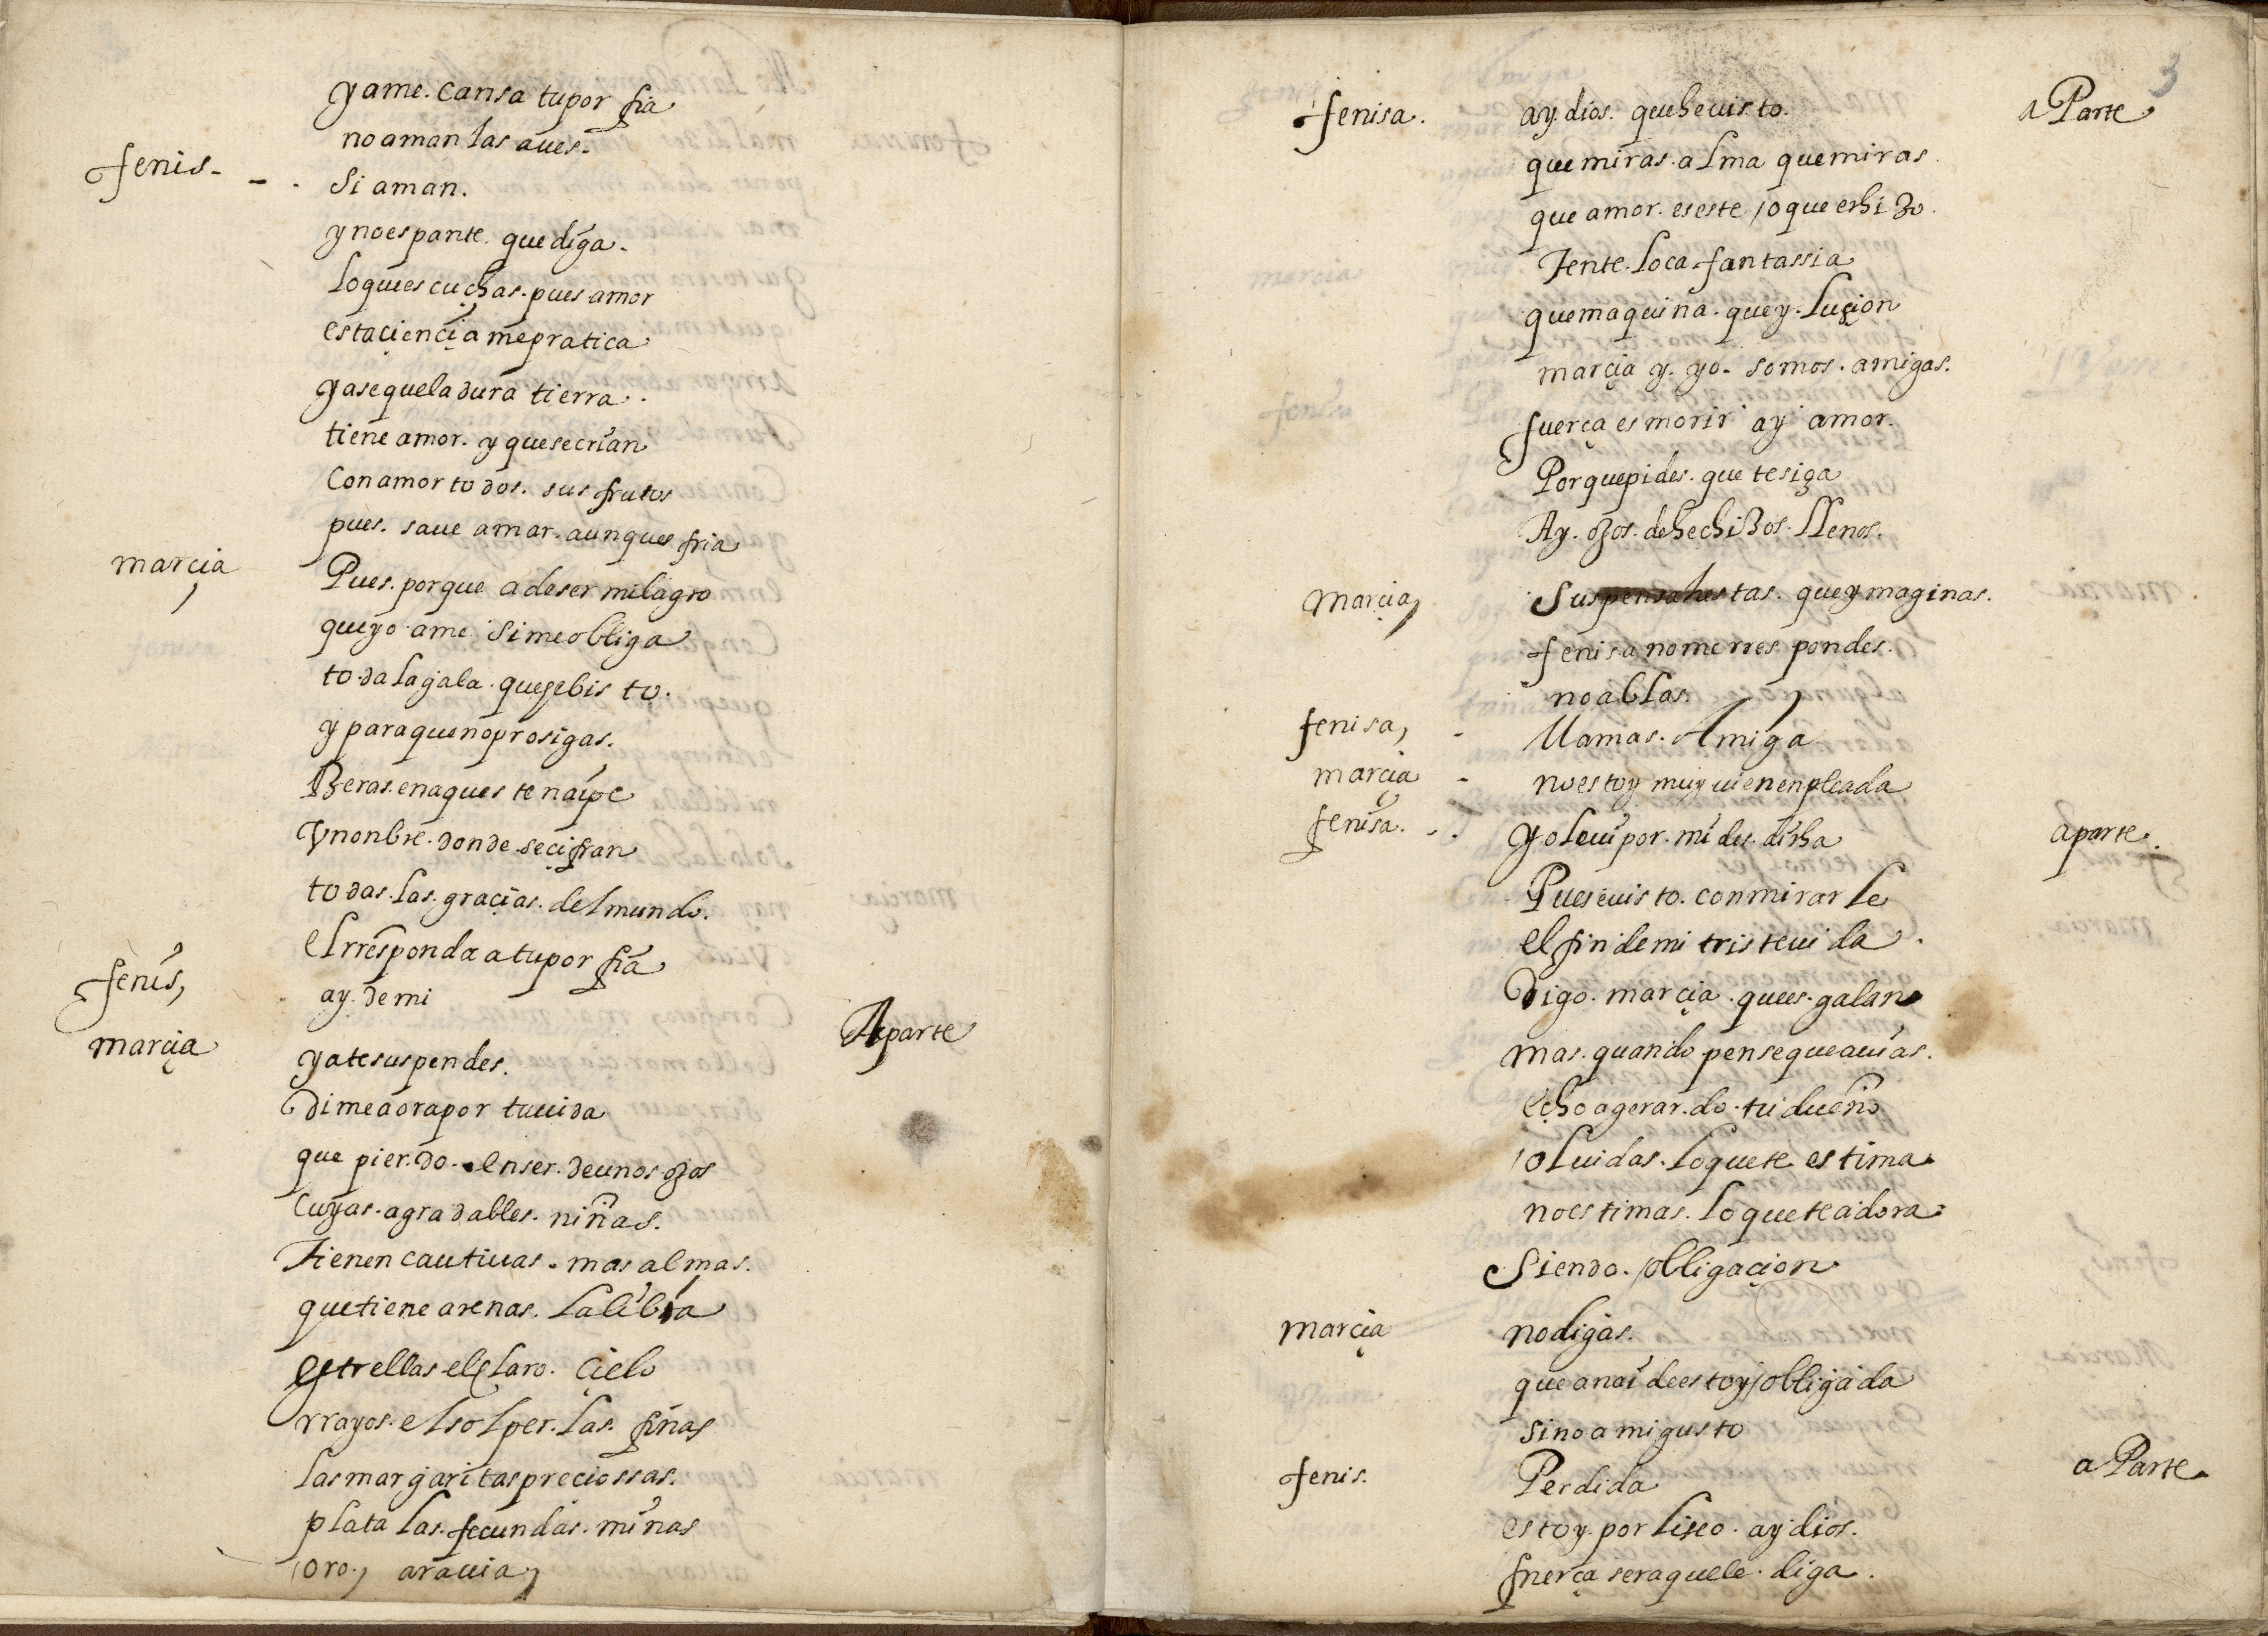 yame. cansa tupor fia
no aman las aues.
fenis - - . Si aman.
y no espante. que diga.
lo que escuchas. pues amor
esta ciencia me pratica
ya se que la dura tierra.
tiene amor. y que se crian
Con amor todos. sus frutos
pues. saue amar. aunques fria
marcia Pues. porque a de ser milagro
que yo ame si me obliga
toda la gala. que se bisto.
y para que no prosigas.
Beras. en aqueste naipe
Vn onbre. donde se cifran
todas. las. gracias. del mundo.
el rresponda a tu por fia
fenis, ay. de mi Aparte
marcia ya te suspendes.
Dime aora por tu uida
que pier.do. en ser. de unos ojos
Cuyas. agradables. niñas.
Tienen cautiuas. mas almas.
que tiene arenas. la libia
estrellas el claro. cielo
rrayos. el sol per. las. finas
las margaritas preciossas.
plata las. fecundas. minas
oro, arauia,
3
fenisa. ay. dios. que he uisto. a Parte
que miras. alma que miras.
que amor. es este / o que erhi zo.
Tente. loca fantassia
que maquina. que y. luçion
marçia y. yo. somos. amigas.
fuerça es morir ay amor.
Por que pides. que te siga
Ay. ojos. de hechizos. llenos.
Marçia, Suspensa estas. que ymaginas.
fenisa no me rres pondes.
no ablas.
fenisa, - llamas. Amiga
marçia - no estoy muy uien enpleada
fenisa. - . yo le ui por. mi des. dicha aparte.
Pues e uisto. con mirar le
el fin de mi triste uida.
Digo. marçia. que es. galan
mas. quando pense que auias.
echo a gerar.do. tu dueño
oluidas. lo que te estima
no estimas. lo que te adora
Siendo. obligaçion
marçia no digas.
que a nai de estoy obligada
sino a mi gusto
fenis. Perdida a Parte.
estoy. por liseo. ay dios.
fuerça sera que le. diga.